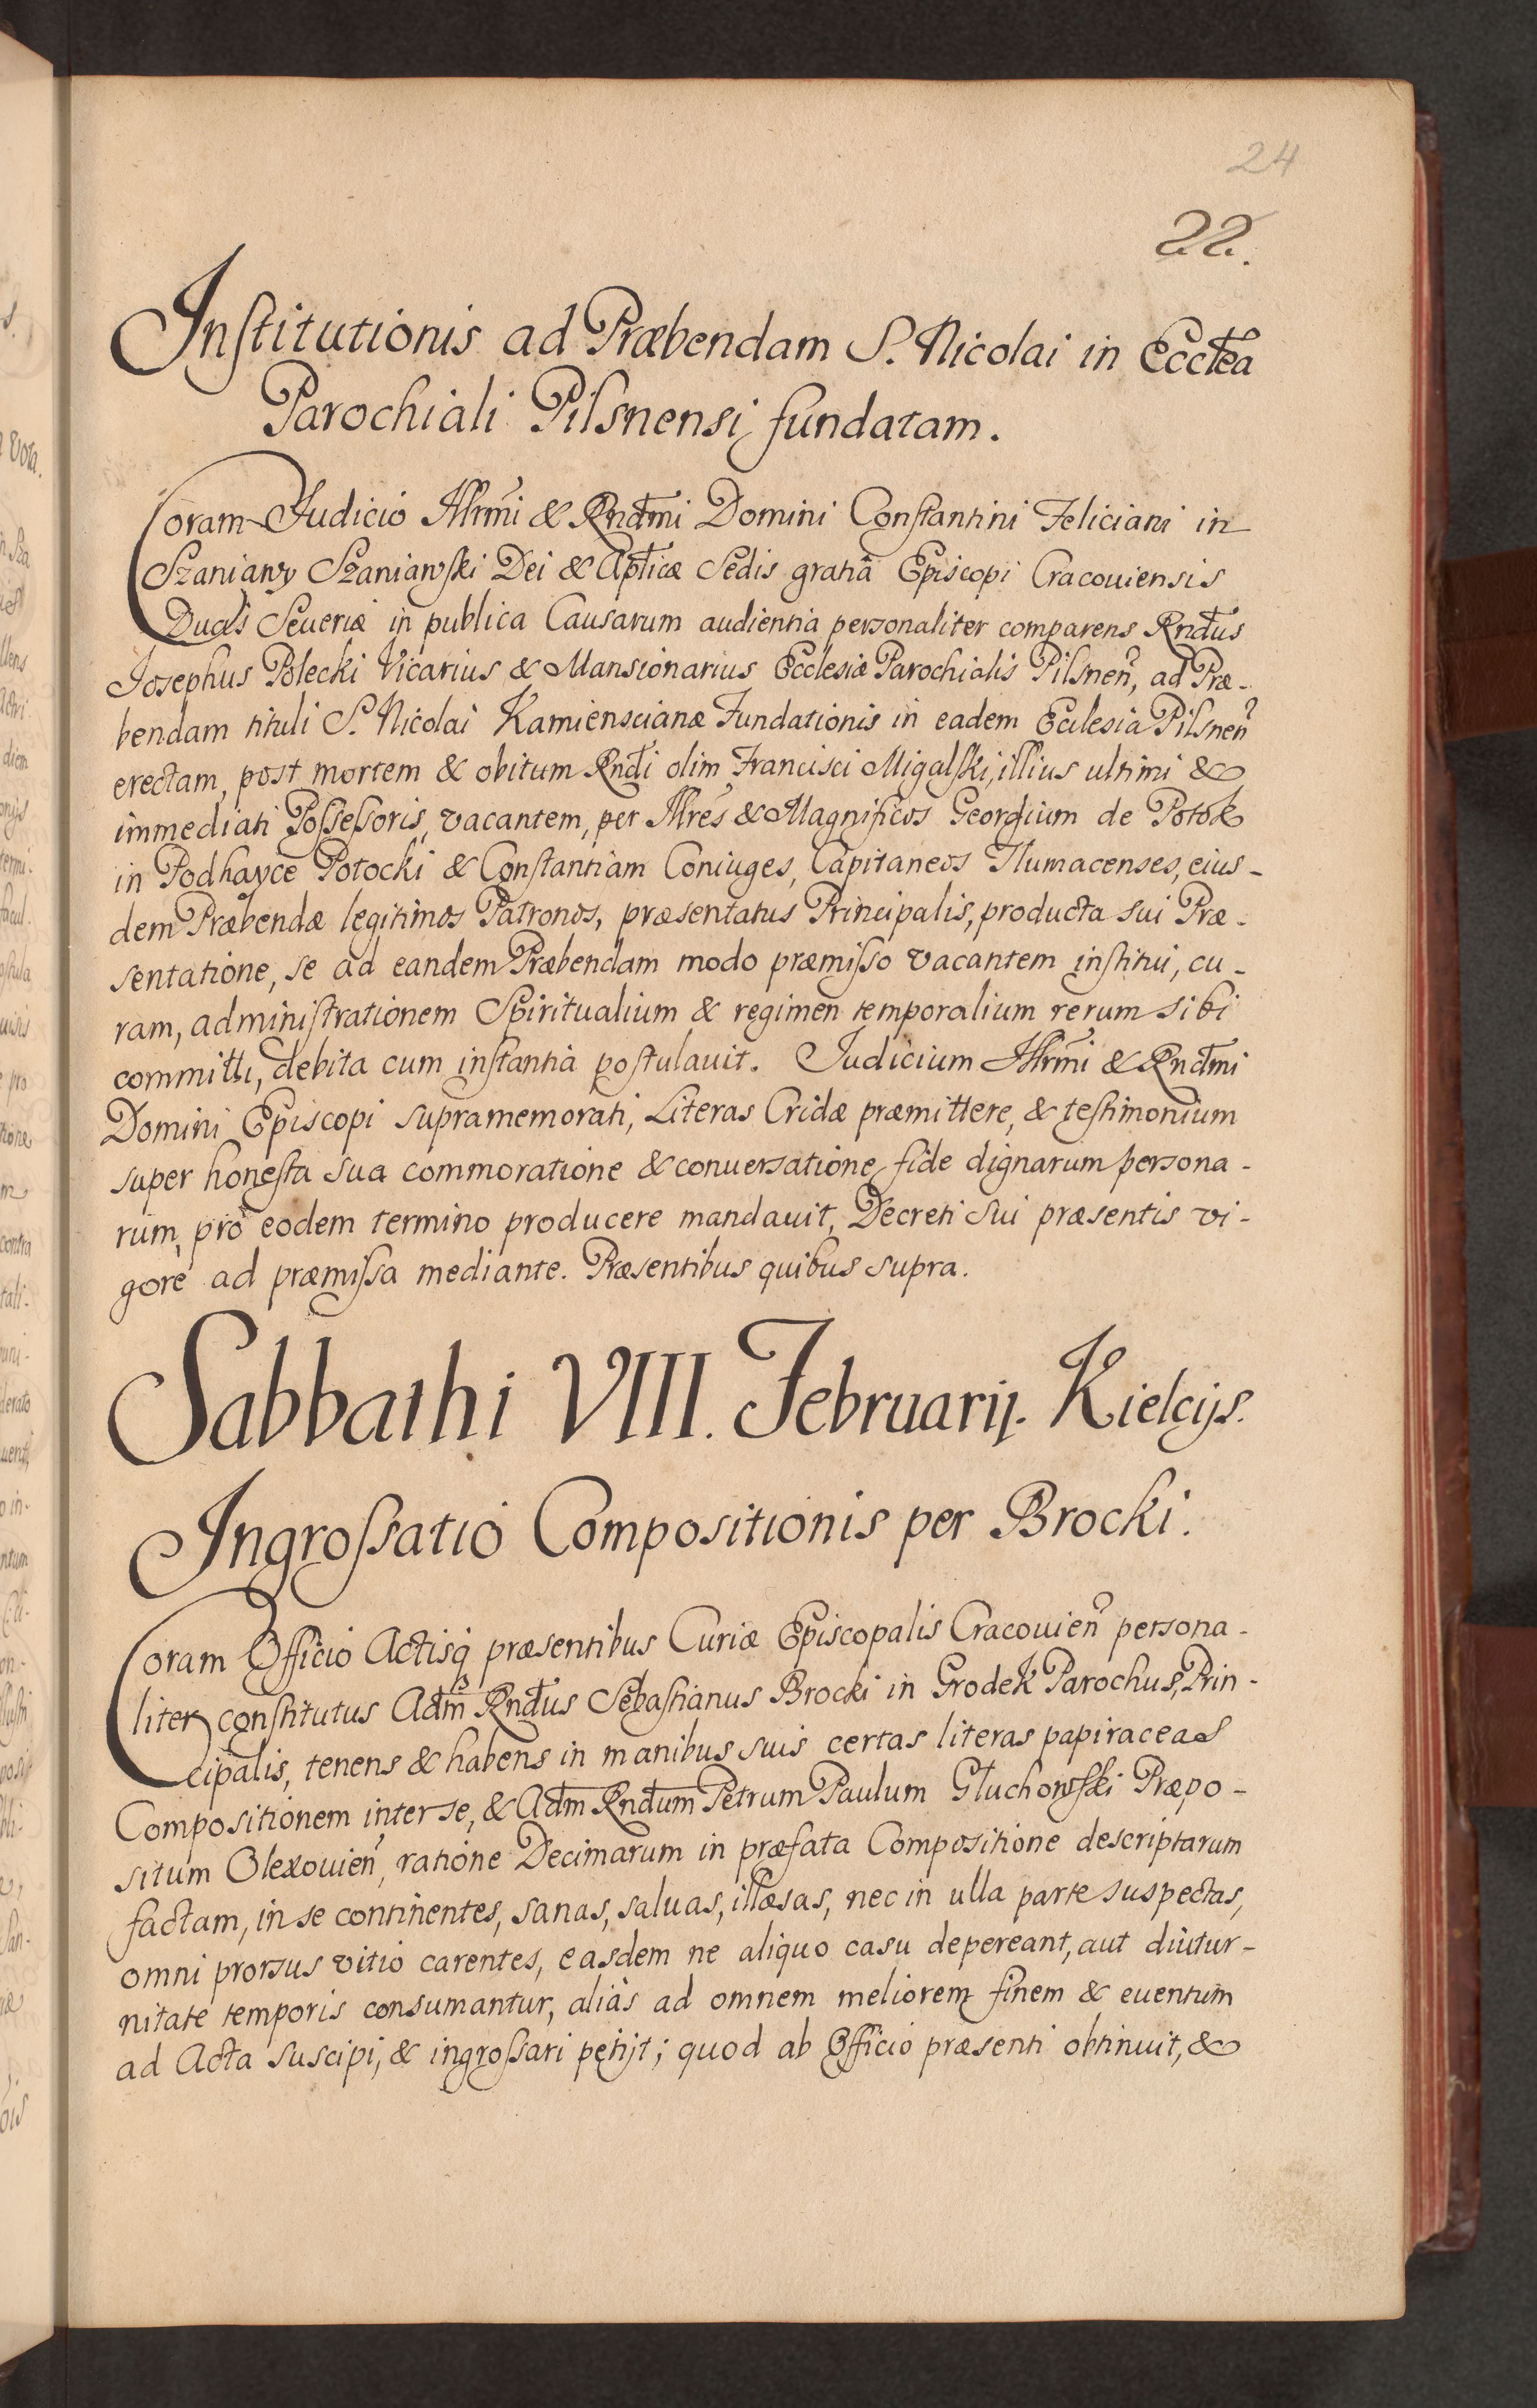 24
22.
Institutionis ad Præbendam S. Nicolai in Eccłea
Parochiali Pilsnensi fundatam.
Coram Judicio Illrmi & Rndmi Domini Constantini Feliciani in
Szaniawy Szaniawski Dei & Aplicæ Sedis gratiâ Episcopi Cracouiensis
Ducis Seueriæ in publica Causarum audientia personaliter comparens Rndus
Josephus Polecki Vicarius & Mansionarius Ecclesiæ Parochialis Pilsnen, ad Præ-
bendam tituli S. Nicolai Kamienscianæ Fundationis in eadem Ecclesia Pilsnen
erectam, post mortem & obitum Rndi olim Francisci Migalski, illius ultimi &
immediati Possessoris, vacantem, per Illres & Magnificos Georgium de Potok
in Podhayce Potocki & Constantiam Coniuges, Capitaneos Tlumacenses, eius-
dem Præbendæ legitimos Patronos, præsentatus Principalis, producta sui Præ-
sentatione, se ad eandem Præbendam modo præmisso vacantem institui, cu-
ram, administrationem Spiritualium & regimen temporalium rerum sibi
committi, debita cum instantia postulauit. Judicium Illrmi & Rndmi
Domini Episcopi supramemorati, Literas Cridæ præmittere, & testimonium
super honesta sua commoratione & conuersatione fide dignarum persona-
rum, pro eodem termino producere mandauit, Decreti sui præsentis vi-
gore ad præmissa mediante. Præsentibus quibus supra.
Sabbathi VIII. Februarij. Kielcijs.
Ingrossatio Compositionis per Brocki.
Coram Officio Actisq præsentibus Curiæ Episcopalis Cracouien persona-
liter constitutus Adm Rndus Sebastianus Brocki in Grodek Parochus, Prin-
cipalis, tenens & habens in manibus suis certas literas papiraceas
Compositionem inter se, & Adm Rndum Petrum Paulum Głuchowski Præpo-
situm Olexouien, ratione Decimarum in præfata Compositione descriptarum
factam, in se continentes, sanas, saluas, illæsas, nec in ulla parte suspectas,
omni prorsus vitio carentes, easdem ne aliquo casu depereant, aut diutur-
nitate temporis consumantur, aliàs ad omnem meliorem finem & euentum
ad Acta suscipi, & ingrossari petijt; quod ab Officio præsenti obtinuit, &